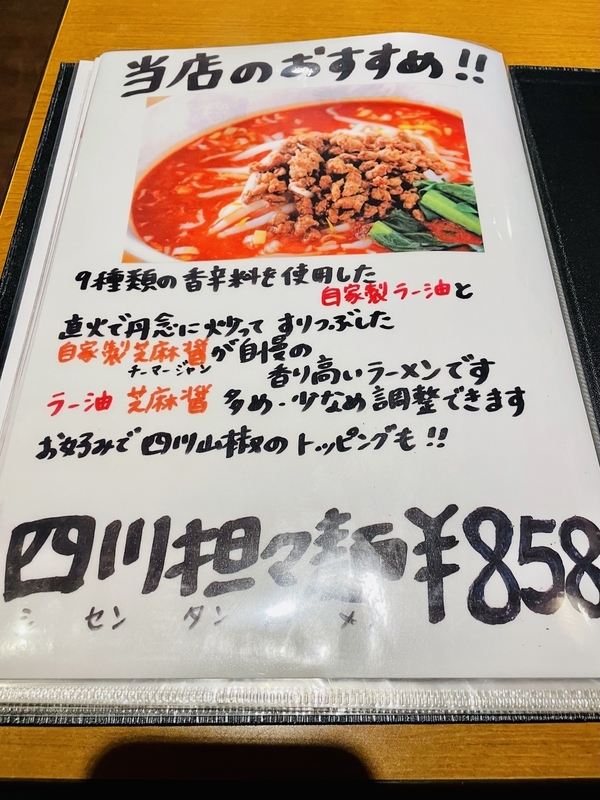 当店のおすすめ!!
9種類の香辛料を使用した
自家製ラー油と
直火で丹念に炒って すりつぶした
自家製芝麻醤が自慢の
チーマージャン
香り高いラーメンです
ラー油 芝麻醤 多め・少なめ調整できます
お好みで四川山椒のトッピングも!!
四川担々麺¥858
シセンタン メ